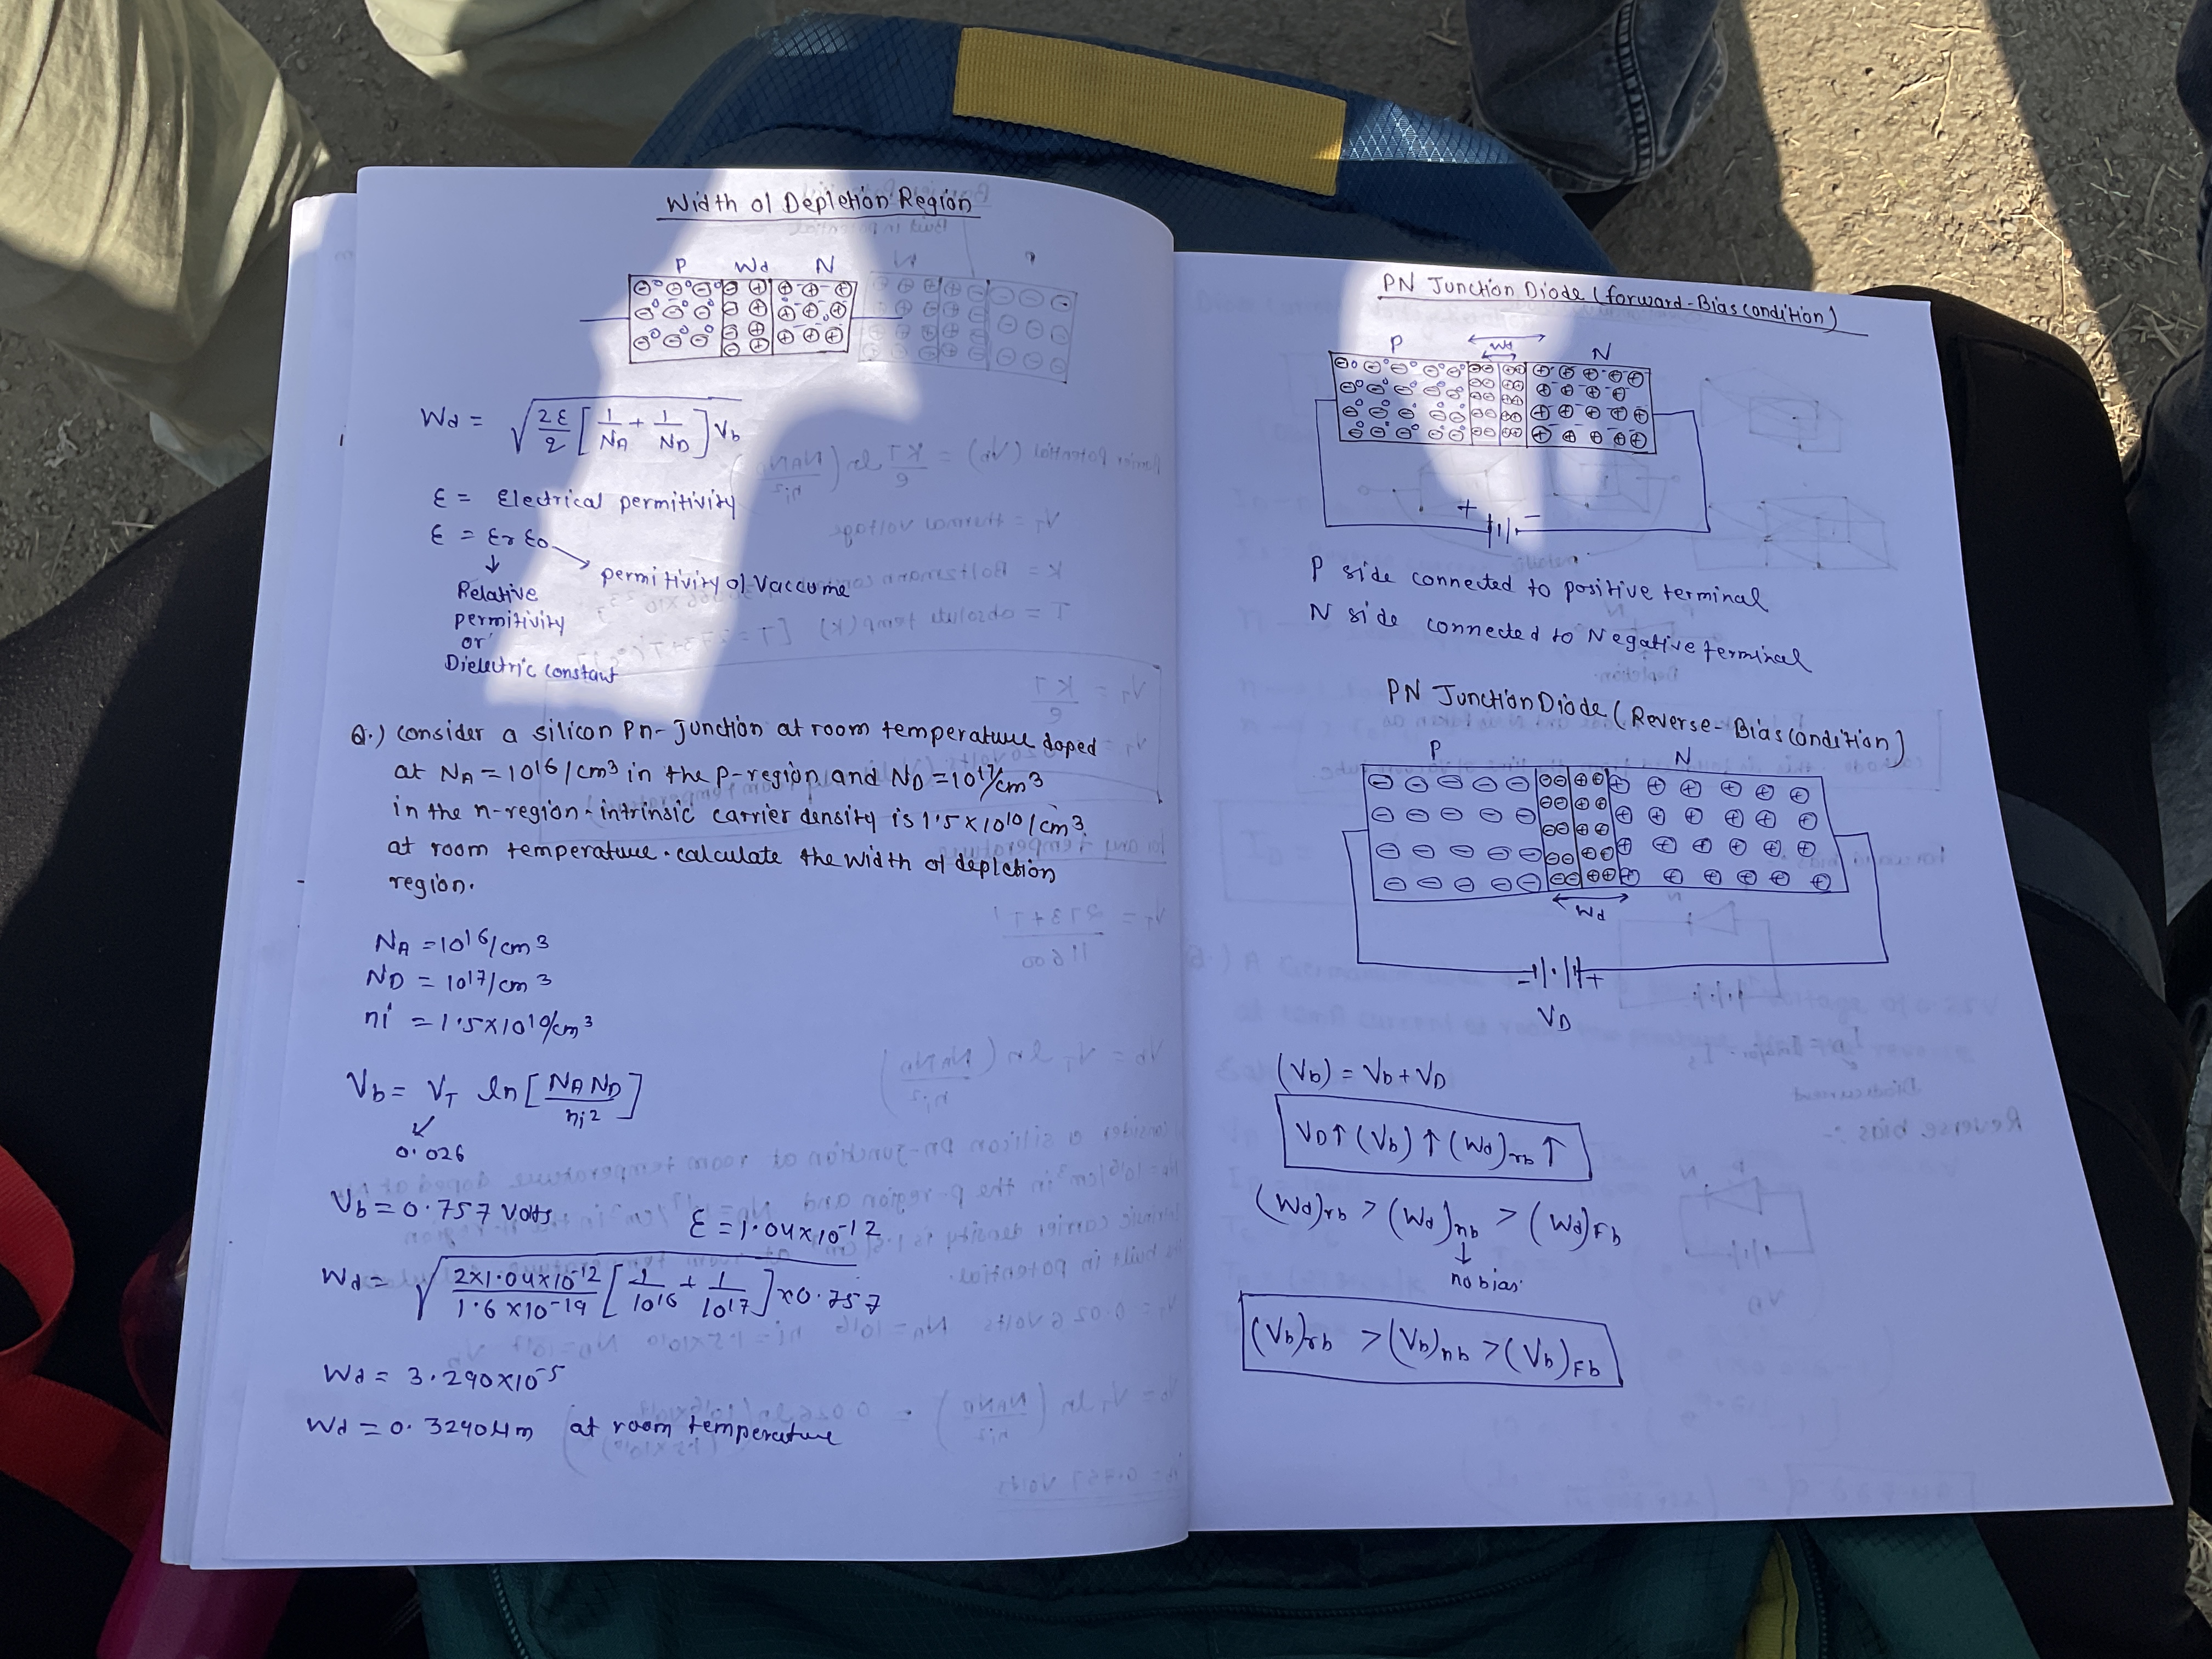 Width of Depletion Region
P Wd N
Wd = √(2ε/q [1/NA + 1/ND] Vb)
ε = Electrical permitivity
ε = εr ε0
permitivity of Vaccume
Relative
permitivity
or
Dielectric constant
Q.) consider a silicon Pn-Junction at room temperature doped
at NA = 10^16/cm³ in the p-region and ND = 10^17/cm³
in the n-region. intrinsic carrier density is 1.5×10^10/cm³
at room temperature. calculate the width of depletion
region.
NA = 10^16/cm³
ND = 10^17/cm³
ni = 1.5×10^10/cm³
Vb = VT ln [NA ND / ni²]
0.026
Vb = 0.757 Volts
ε = 1.04×10^-12
Wd = √(2×1.04×10^-12 / 1.6×10^-19 [1/10^16 + 1/10^17] × 0.757
Wd = 3.290×10^-5
Wd = 0.3290μm at room temperature
PN Junction Diode (forward-Bias condition)
P Wd N
+ −
P side connected to positive terminal
N side connected to Negative terminal
PN Junction Diode (Reverse-Bias condition)
P N
Wd
− +
VD
(Vb) = Vb + VD
VD↑ (Vb)↑ (Wd)rb ↑
(Wd)rb > (Wd)nb > (Wd)Fb
no bias
(Vb)rb > (Vb)nb > (Vb)Fb